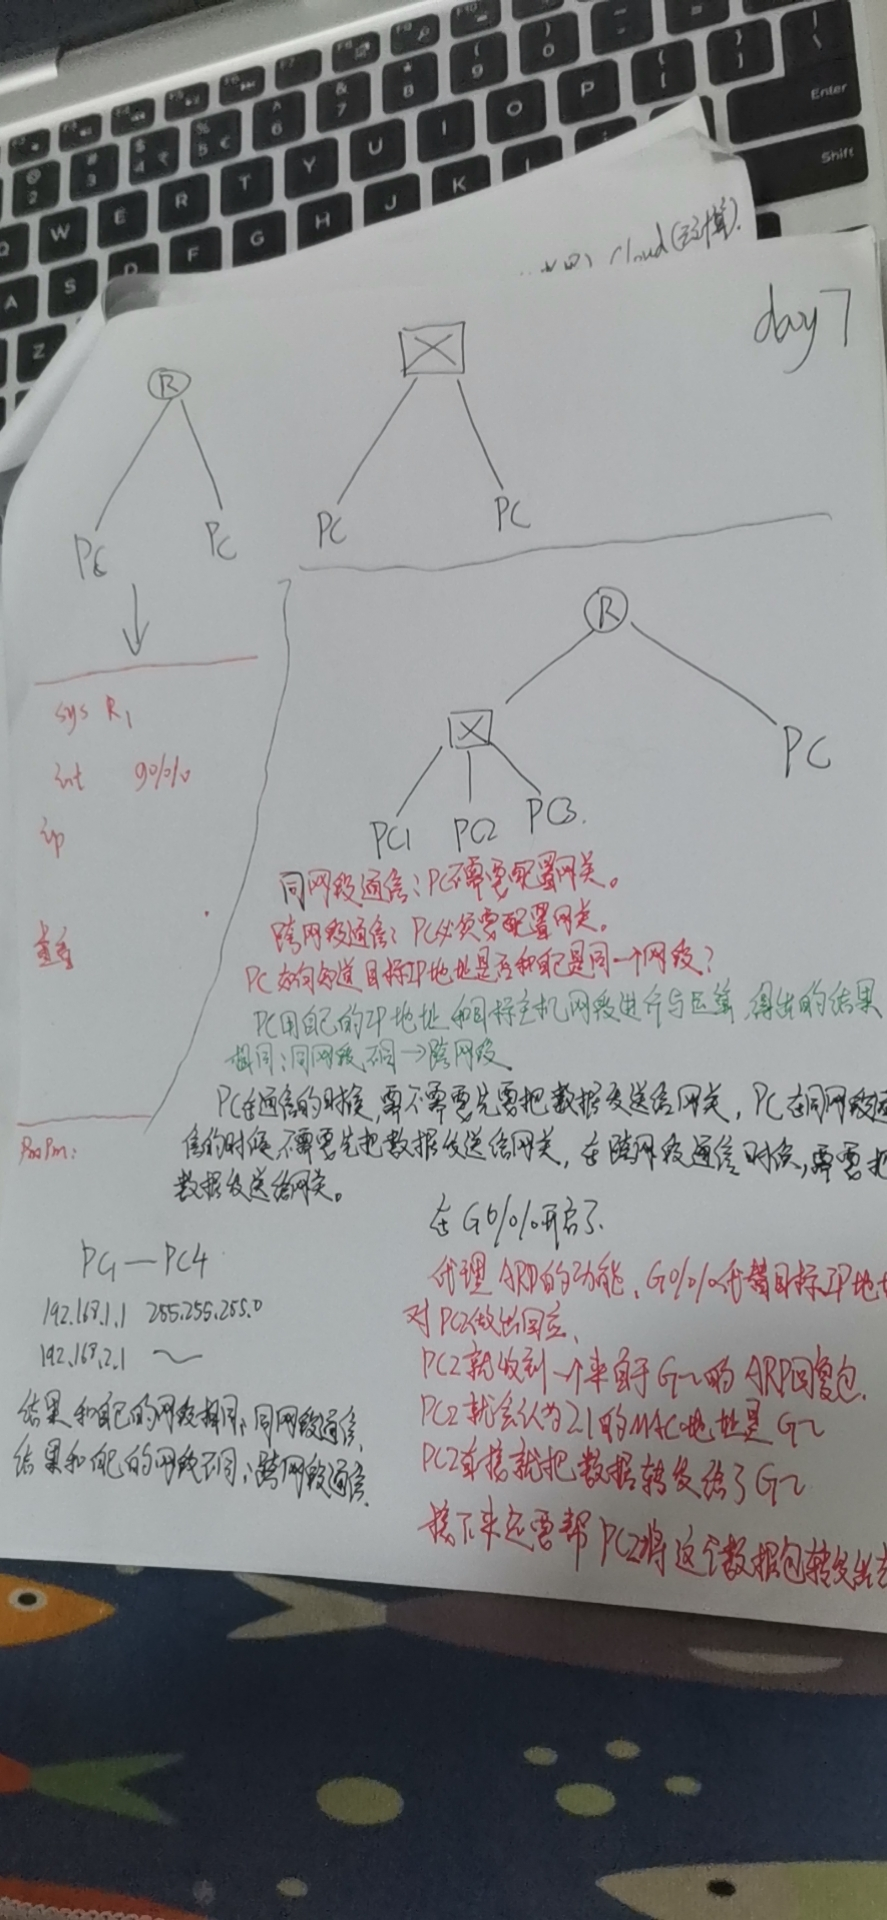 Cloud(云计算).
day7
R
PC
PC
PC
PC
sys R1
int g0/0/0
ip
R
PC
PC1
PC2
PC3.
同网段通信：PC不需要配置网关。
跨网段通信：PC必须要配置网关。
PC如何知道目标IP地址是否和自己是同一个网段？
PC用自己的IP地址和目标主机网段进行与运算，得出的结果
相同：同网段，不同→跨网段
PC在通信的时候，需不需要先要把数据发送给网关，PC在同网段通
信的时候，不需要先把数据发送给网关，在跨网段通信时候，需要把
数据发送给网关。
在G0/0/0开启了
代理ARP的功能，G0/0/0代替目标IP地址
对PC2做出回应，
PC2就收到一个来自于G~的ARP回复包，
PC2就会认为2.1的MAC地址是G~
PC2直接就把数据转发给了G~
接下来还要帮PC2将这个数据包转发出去
PC1—PC4
192.168.1.1 255.255.255.0
192.168.2.1 ~
结果和自己的网段相同：同网段通信，
结果和自己的网段不同：跨网段通信，